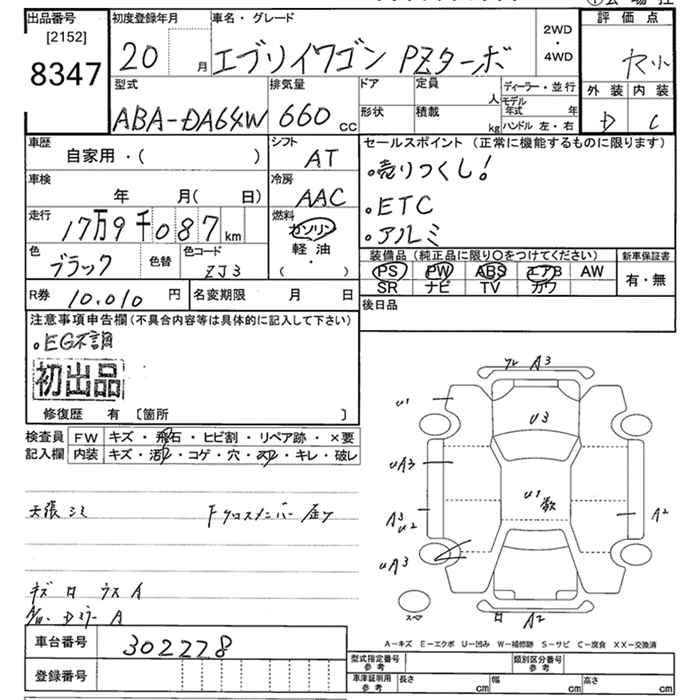 出品番号 [2152] 8347
初度登録年月 20 月
車名・グレード エブリイワゴン PZターボ
2WD・4WD
評価点
外装 D 内装 C
型式 ABA-DA64W
排気量 660 cc
ドア 形状
定員 人 積載 kg
ディーラー・並行
モデル年式 年
ハンドル 左・右
車歴 自家用・( )
シフト AT
車検 年 月( 日)
冷房 AAC
走行 17万9千087 km
燃料 ガソリン 軽油・( )
色 ブラック 色替 色コード ZJ3
セールスポイント (正常に機能するものに限ります)
・売りつくし!
・ETC
・アルミ
装備品 (純正品に限り○をつけてください) 新車保証書
PS PW ABS エアB AW 有・無
SR ナビ TV カワ
R券 10,010 円 名変期限 月 日
後日品
注意事項申告欄 (不具合内容等は具体的に記入して下さい)
・EG不調
初出品
修復歴 有 [箇所 ]
検査員 FW キズ・飛石・ヒビ割・リペア跡・×要
記入欄 内装 キズ・汚れ・コゲ・穴・スレ・キレ・破レ
天張シミ Fクロスメンバー 曲り
A3
U1
U3
UA3
U1 数
A3 U2
A2
UA3
スペア
A2
A−キズ E−エクボ U−凹み W−補修跡 S−サビ C−腐食 XX−交換済
車台番号 302778
登録番号
型式指定番号 参考 類別区分番号 参考
車庫証明用 参考 長さ cm 幅 cm 高さ cm